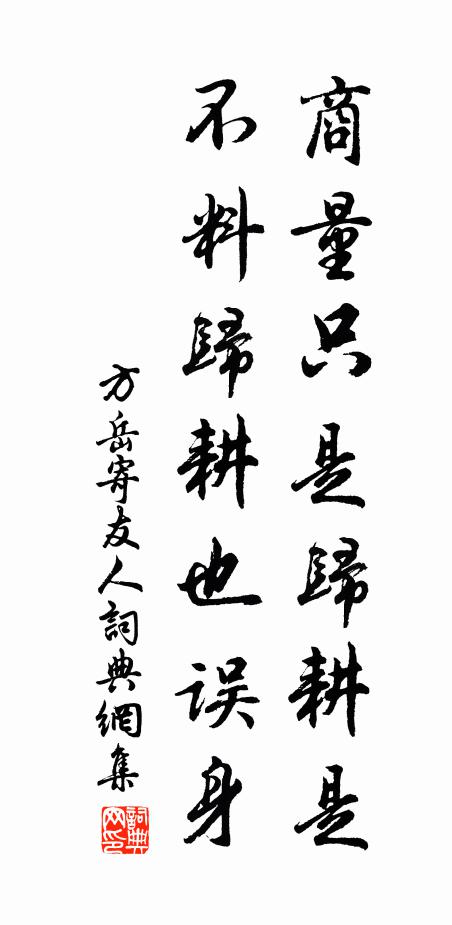 商量只是歸耕是
不料歸耕也误身
方岳寄友人詞典網集
詞典网印